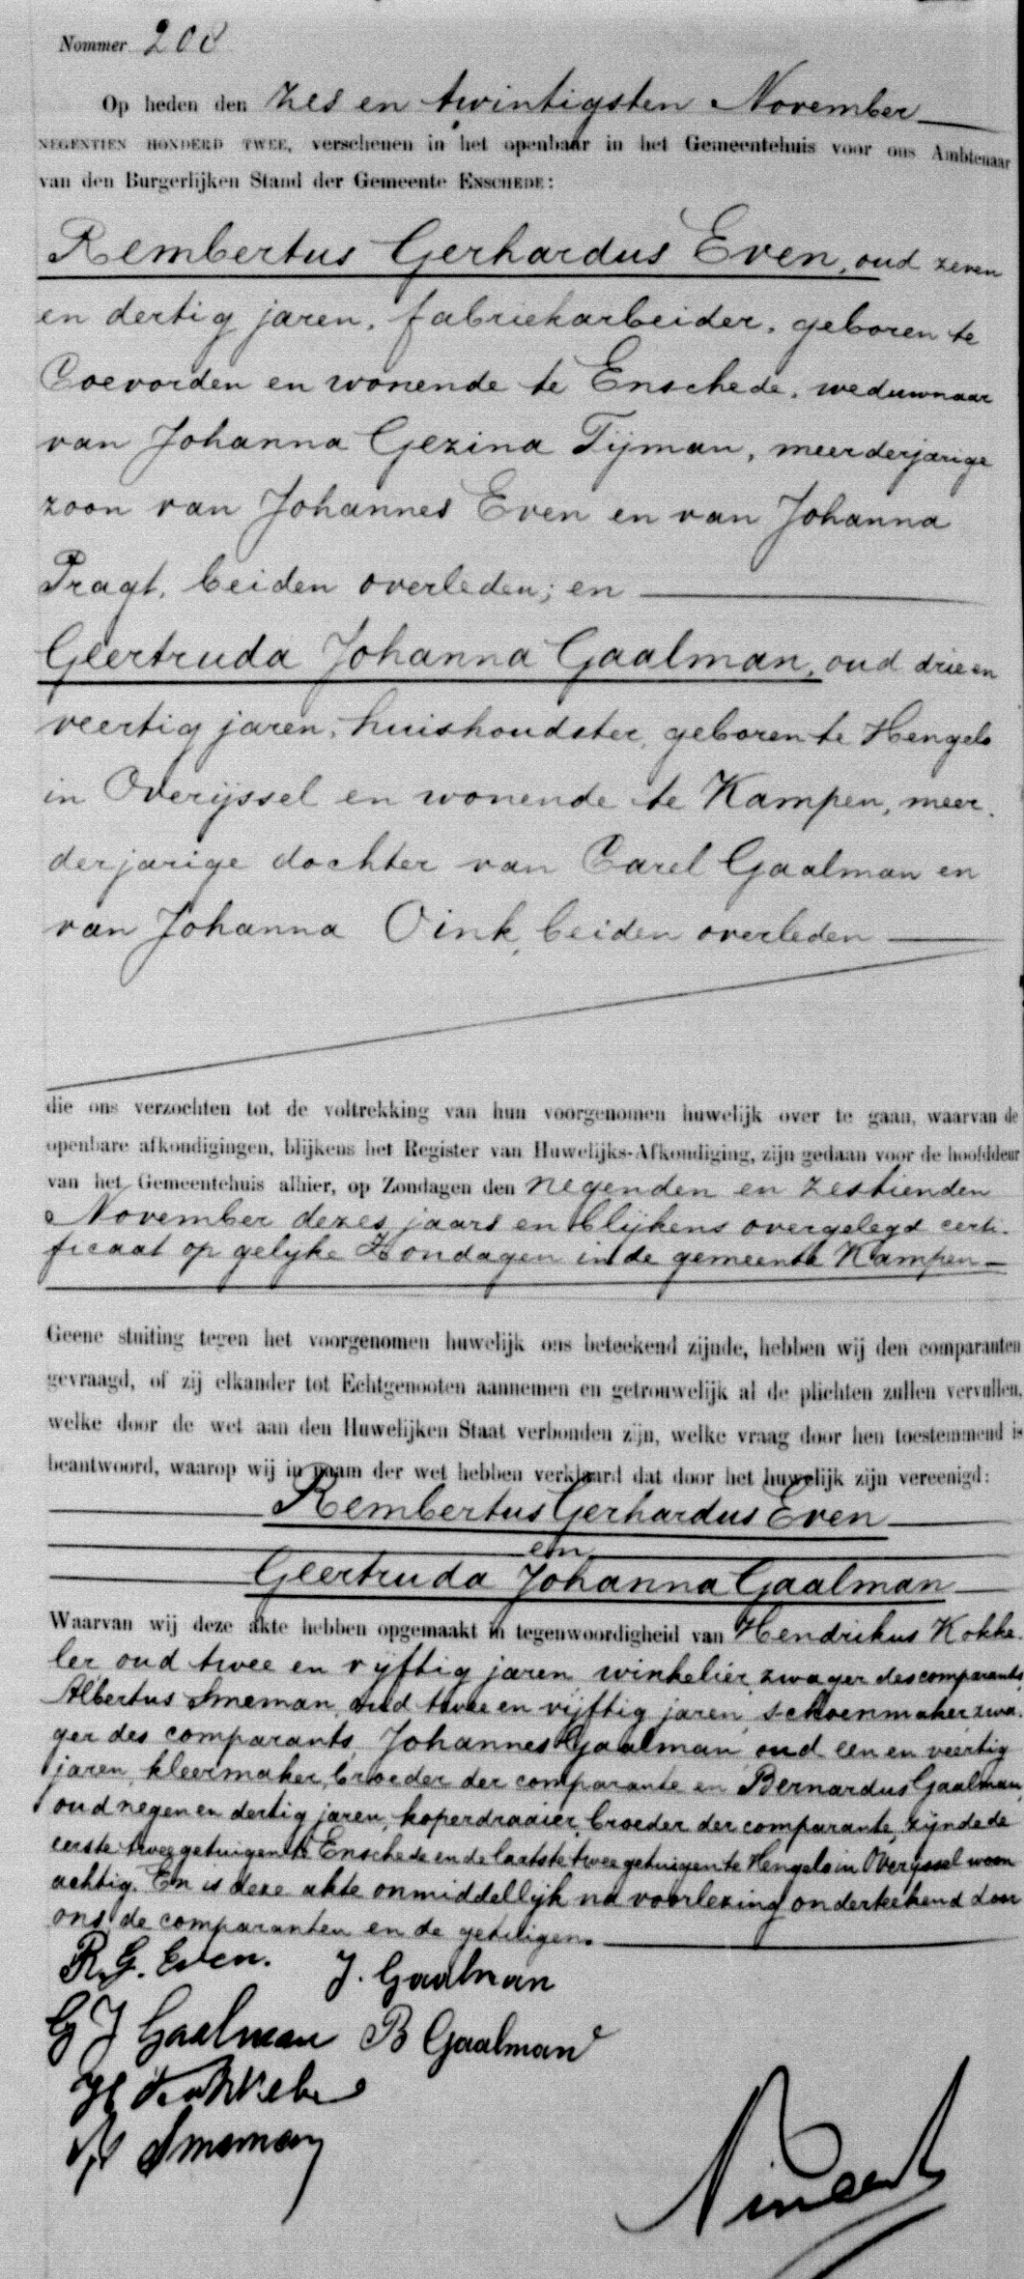 Nommer 208
Op heden den zes en twintigsten November
NEGENTIEN HONDERD TWEE, verschenen in het openbaar in het Gemeentehuis voor ons Ambtenaar
van den Burgerlijken Stand der Gemeente ENSCHEDE:
Rembertus Gerhardus Even, oud zeven
en dertig jaren, fabriekarbeider, geboren te
Coevorden en wonende te Enschede, weduwnaar
van Johanna Gezina Tijman, meerderjarige
zoon van Johannes Even en van Johanna
Pragt, beiden overleden; en
Geertruda Johanna Gaalman, oud drie en
veertig jaren, huishoudster, geboren te Hengelo
in Overijssel en wonende te Kampen, meer.
derjarige dochter van Carel Gaalman en
van Johanna Oink, beiden overleden
die ons verzochten tot de voltrekking van hun voorgenomen huwelijk over te gaan, waarvan de
openbare afkondigingen, blijkens het Register van Huwelijks-Afkondiging, zijn gedaan voor de hoofddeur
van het Gemeentehuis alhier, op Zondagen den negenden en zestienden
November dezes jaars en blijkens overgelegd certi-
ficaat op gelijke Zondagen in de gemeente Kampen
Geene stuiting tegen het voorgenomen huwelijk ons beteekend zijnde, hebben wij den comparanten
gevraagd, of zij elkander tot Echtgenooten aannemen en getrouwelijk al de plichten zullen vervullen,
welke door de wet aan den Huwelijken Staat verbonden zijn, welke vraag door hen toestemmend is
beantwoord, waarop wij in naam der wet hebben verklaard dat door het huwelijk zijn vereenigd:
Rembertus Gerhardus Even
en
Geertruda Johanna Gaalman
Waarvan wij deze akte hebben opgemaakt in tegenwoordigheid van Hendrikus Kokke.
ler, oud twee en vijftig jaren, winkelier, zwager des comparants,
Albertus Smeman, oud twee en vijftig jaren, schoenmaker, zwa.
ger des comparants, Johannes Gaalman, oud een en veertig
jaren, kleermaker, broeder der comparante en Bernardus Gaalman,
oud negen en dertig jaren, koperdraaier, broeder der comparante, zijnde de
eerste twee getuigen te Enschede en de laatste twee getuigen te Hengelo in Overijssel woon
achtig. En is deze akte onmiddellijk na voorlezing onderteekend door
ons, de comparanten en de getuigen.
R. G. Even. J. Gaalman
G J Gaalman B Gaalman
H Kokkeler
A Smeman